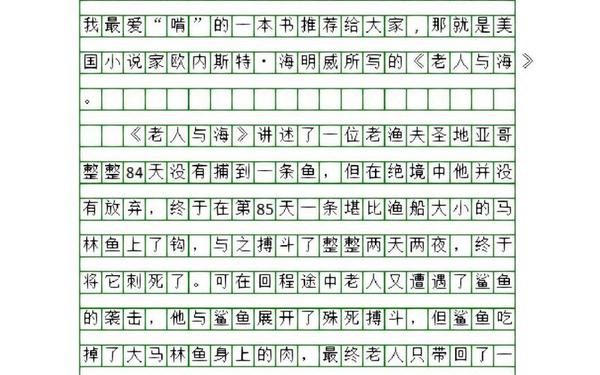 我最爱“啃”的一本书推荐给大家，那就是美
国小说家欧内斯特·海明威所写的《老人与海》
。
《老人与海》讲述了一位老渔夫圣地亚哥
整整84天没有捕到一条鱼，但在绝境中他并没
有放弃，终于在第85天一条堪比渔船大小的马
林鱼上了钩，与之搏斗了整整两天两夜，终于
将它刺死了。可在回程途中老人又遭遇了鲨鱼
的袭击，他与鲨鱼展开了殊死搏斗，但鲨鱼吃
掉了大马林鱼身上的肉，最终老人只带回了一